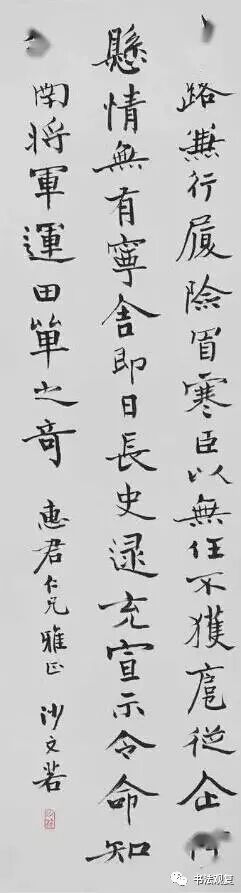 路兼行履險冒寒臣以無任不獲扈從企
懸情無有寧舍即日長史逮充宣示令命知
南將軍運田單之奇 惠君仁兄雅正 沙文若
书法观复